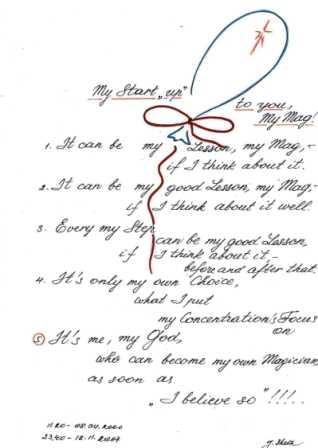 My Start „up"
to you,
My Mag!
1. It can be my Lesson, my Mag,-
if I think about it.
2. It can be my good Lesson, my Mag,-
if I think about it well.
3. Every my Step
can be my good Lesson,
if I think about it,-
before and after that.
4. It's only my own Choice,
what I put
my Concentration's Focus
on
5 It's me, my God,
who can become my own Magician,
as soon as
„I believe so"!!!..